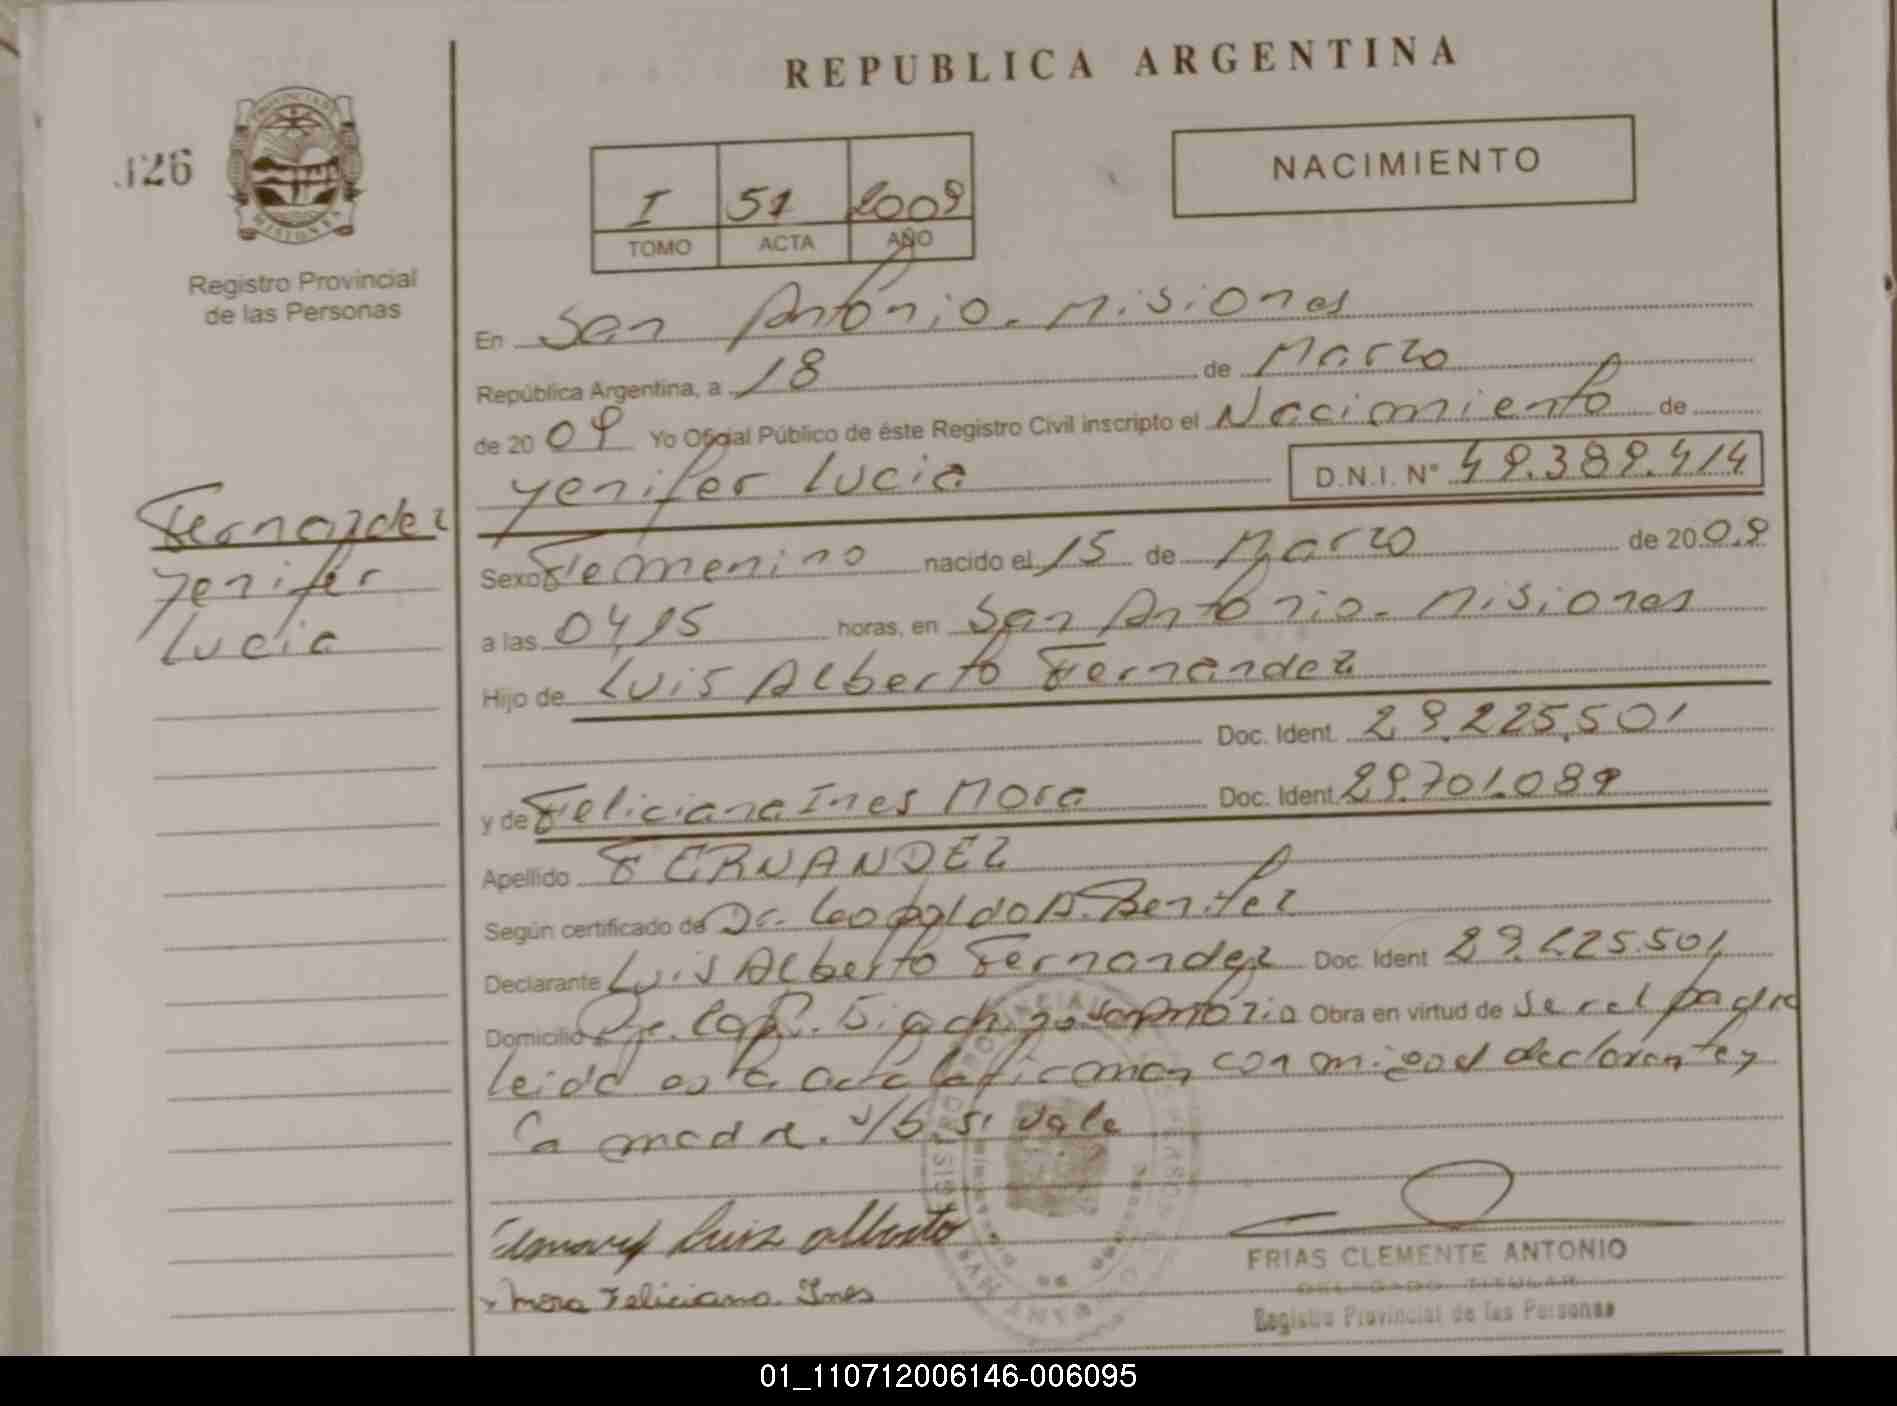 REPUBLICA ARGENTINA
126
PROVINCIA DE
MISIONES
Registro Provincial
de las Personas
I 51 2009
TOMO ACTA AÑO
NACIMIENTO
En San Antonio - Misiones
República Argentina, a 18 de Marzo
de 20 09 Yo Oficial Público de éste Registro Civil inscripto el Nacimiento de
Yenifer Lucia D.N.I. Nº 49.389.414
Fernandez
Yenifer
Lucia
Sexo Femenino nacido el 15 de Marzo de 20 09
a las 04,15 horas, en San Antonio - Misiones
Hijo de Luis Alberto Fernandez
Doc. Ident. 29.225.501
y de Feliciana Ines Mora Doc. Ident. 29.701.089
Apellido FERNANDEZ
Según certificado de Dr. Leopoldo A. Benitez
Declarante Luis Alberto Fernandez Doc. Ident 29.225.501
Domicilio San Antonio Obra en virtud de ser el padre
leida esta acta la firman conmigo el declarante y
la madre. s/b si vale
Luis Alberto
Mora Feliciana Ines
FRIAS CLEMENTE ANTONIO
DELEGADO TITULAR
Registro Provincial de las Personas
01_110712006146-006095